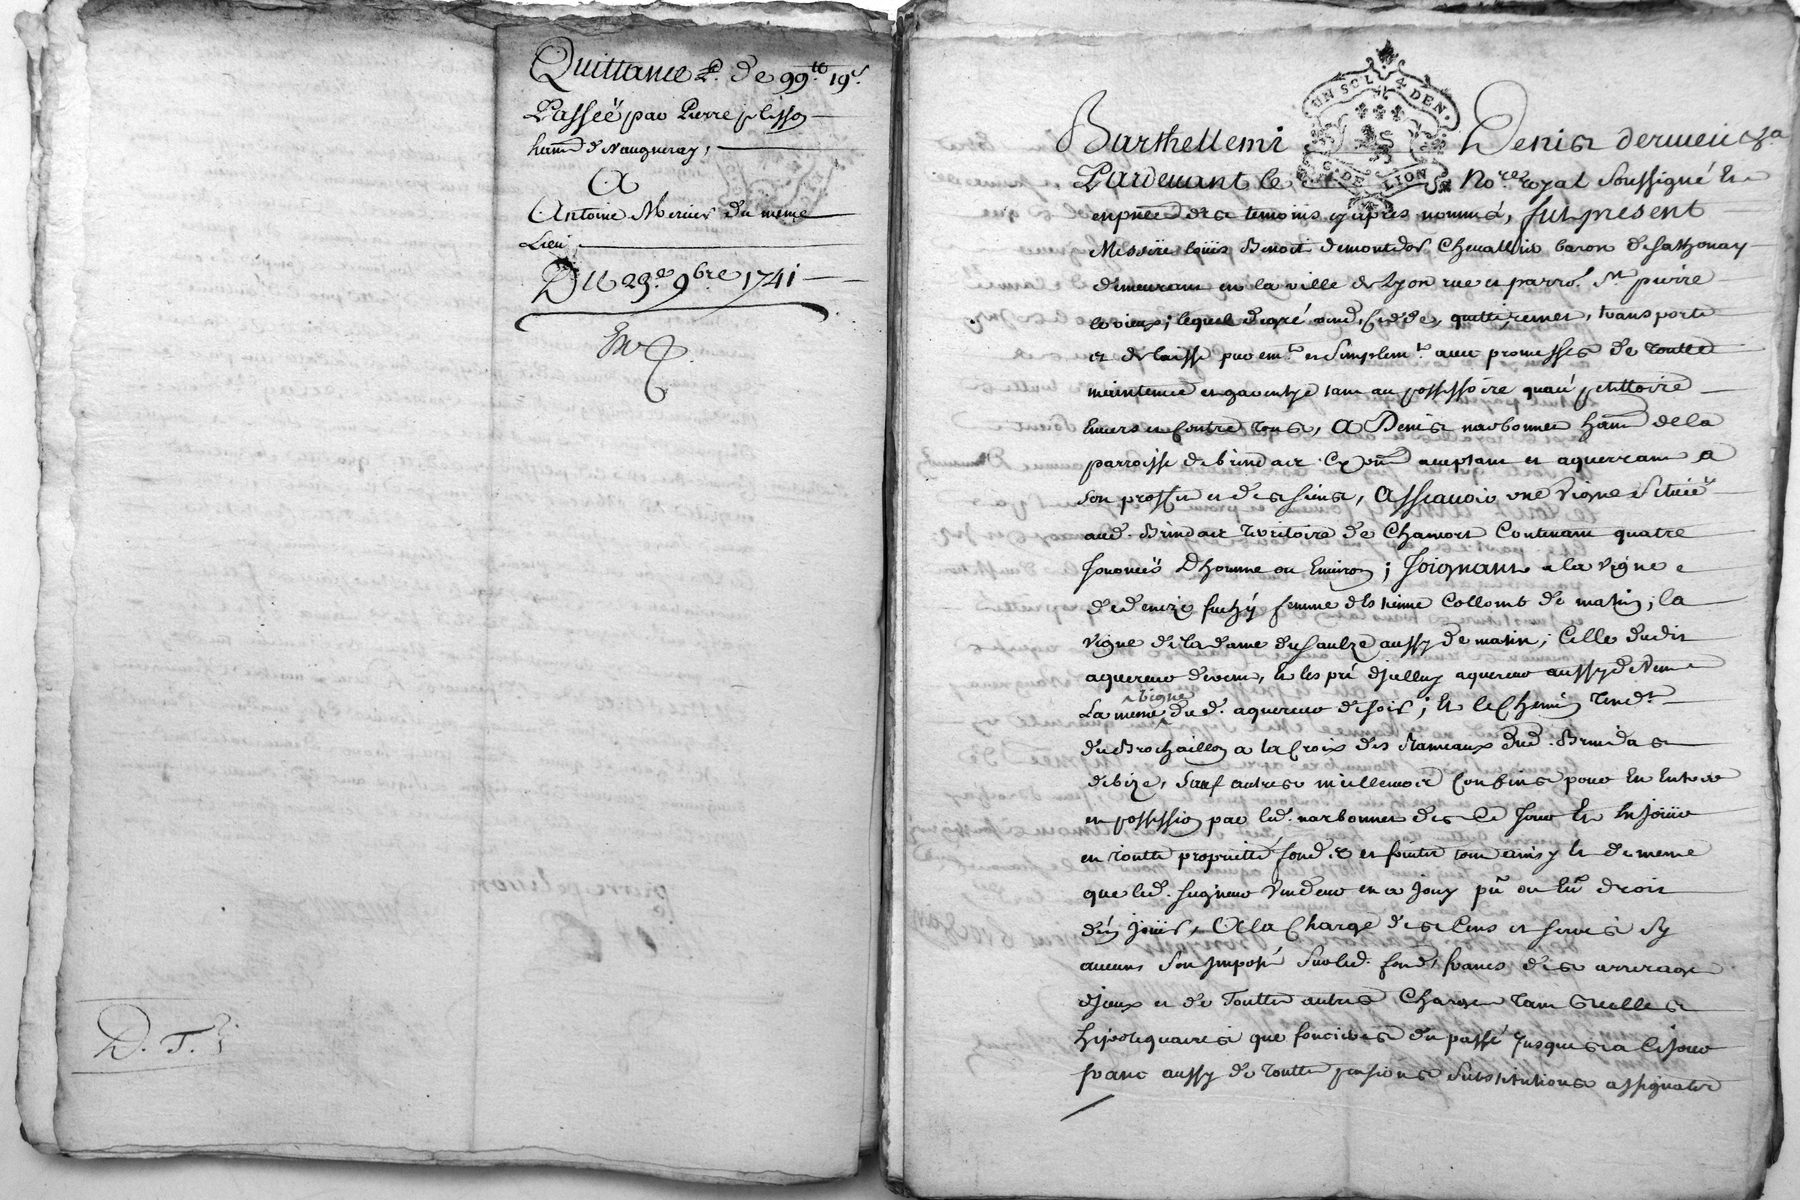 Quittance p. de 99tt 19s
Passéë par Pierre plisson
habnt de Vaugneray,
A
Antoine Mercier du meme
Lieu
Du 29e 9bre 1741
D. T.
UN SOL 4 DEN.
G. DE LION
Barthellemi Denis dervieu
Pardevant le Nore royal soussigné Et
en pnce des temoins cy apres nommés, fut present
Messire loüis Benoit demontdor Chevallier baron de
demeurant en la ville de Lyon rue et parroe St pierre
le vieux; lequel de gré vend, cedde, quitte, remet, transporte
et delaisse puremt et simplemt avec promesses de toutte
maintenue et garentye tant au possessoire quau petittoire
Envers et Contre tous, A Denis narbonnet habnt de la
parroisse de brindas cy pnt aceptant et aquerrant a
son proffit et des siens, Assavoir une vigne scituéë
aud. Brindas territoire de Chamort Contenant quatre
Journéës D'homme ou Environ; Joignant a la vigne
de denize femme destienne Collomb de matin; la
vigne de la dame aussy de matin; Celle dudit
aquereur de vent, et les pré d'jcelluy aquereur aussy de vent
La meme vigne dud. aquereur de soir; Et le Chemin tendt
du Brochaillon a la Croix des Rameaux dud. Brindas
de bize, sauf autres meilleurs Confins pour En Entrer
en possession par led. narbonnet des Ce Jour Et En joüir
en toutte proprietté fond et fruits tout ainsy et de meme
que led. seigneur vendeur en a jouy pû ou eû droit
d'en joüir, A la Charge des Cens et servis sy
aucuns son imposé sur led. fond, francs des arrerages
d'jceux et de Touttes autres Charges tant réelles
hipotequaires que foncieres du passé jusques a ce jour
franc aussy de touttes pensions substitutions assignaton